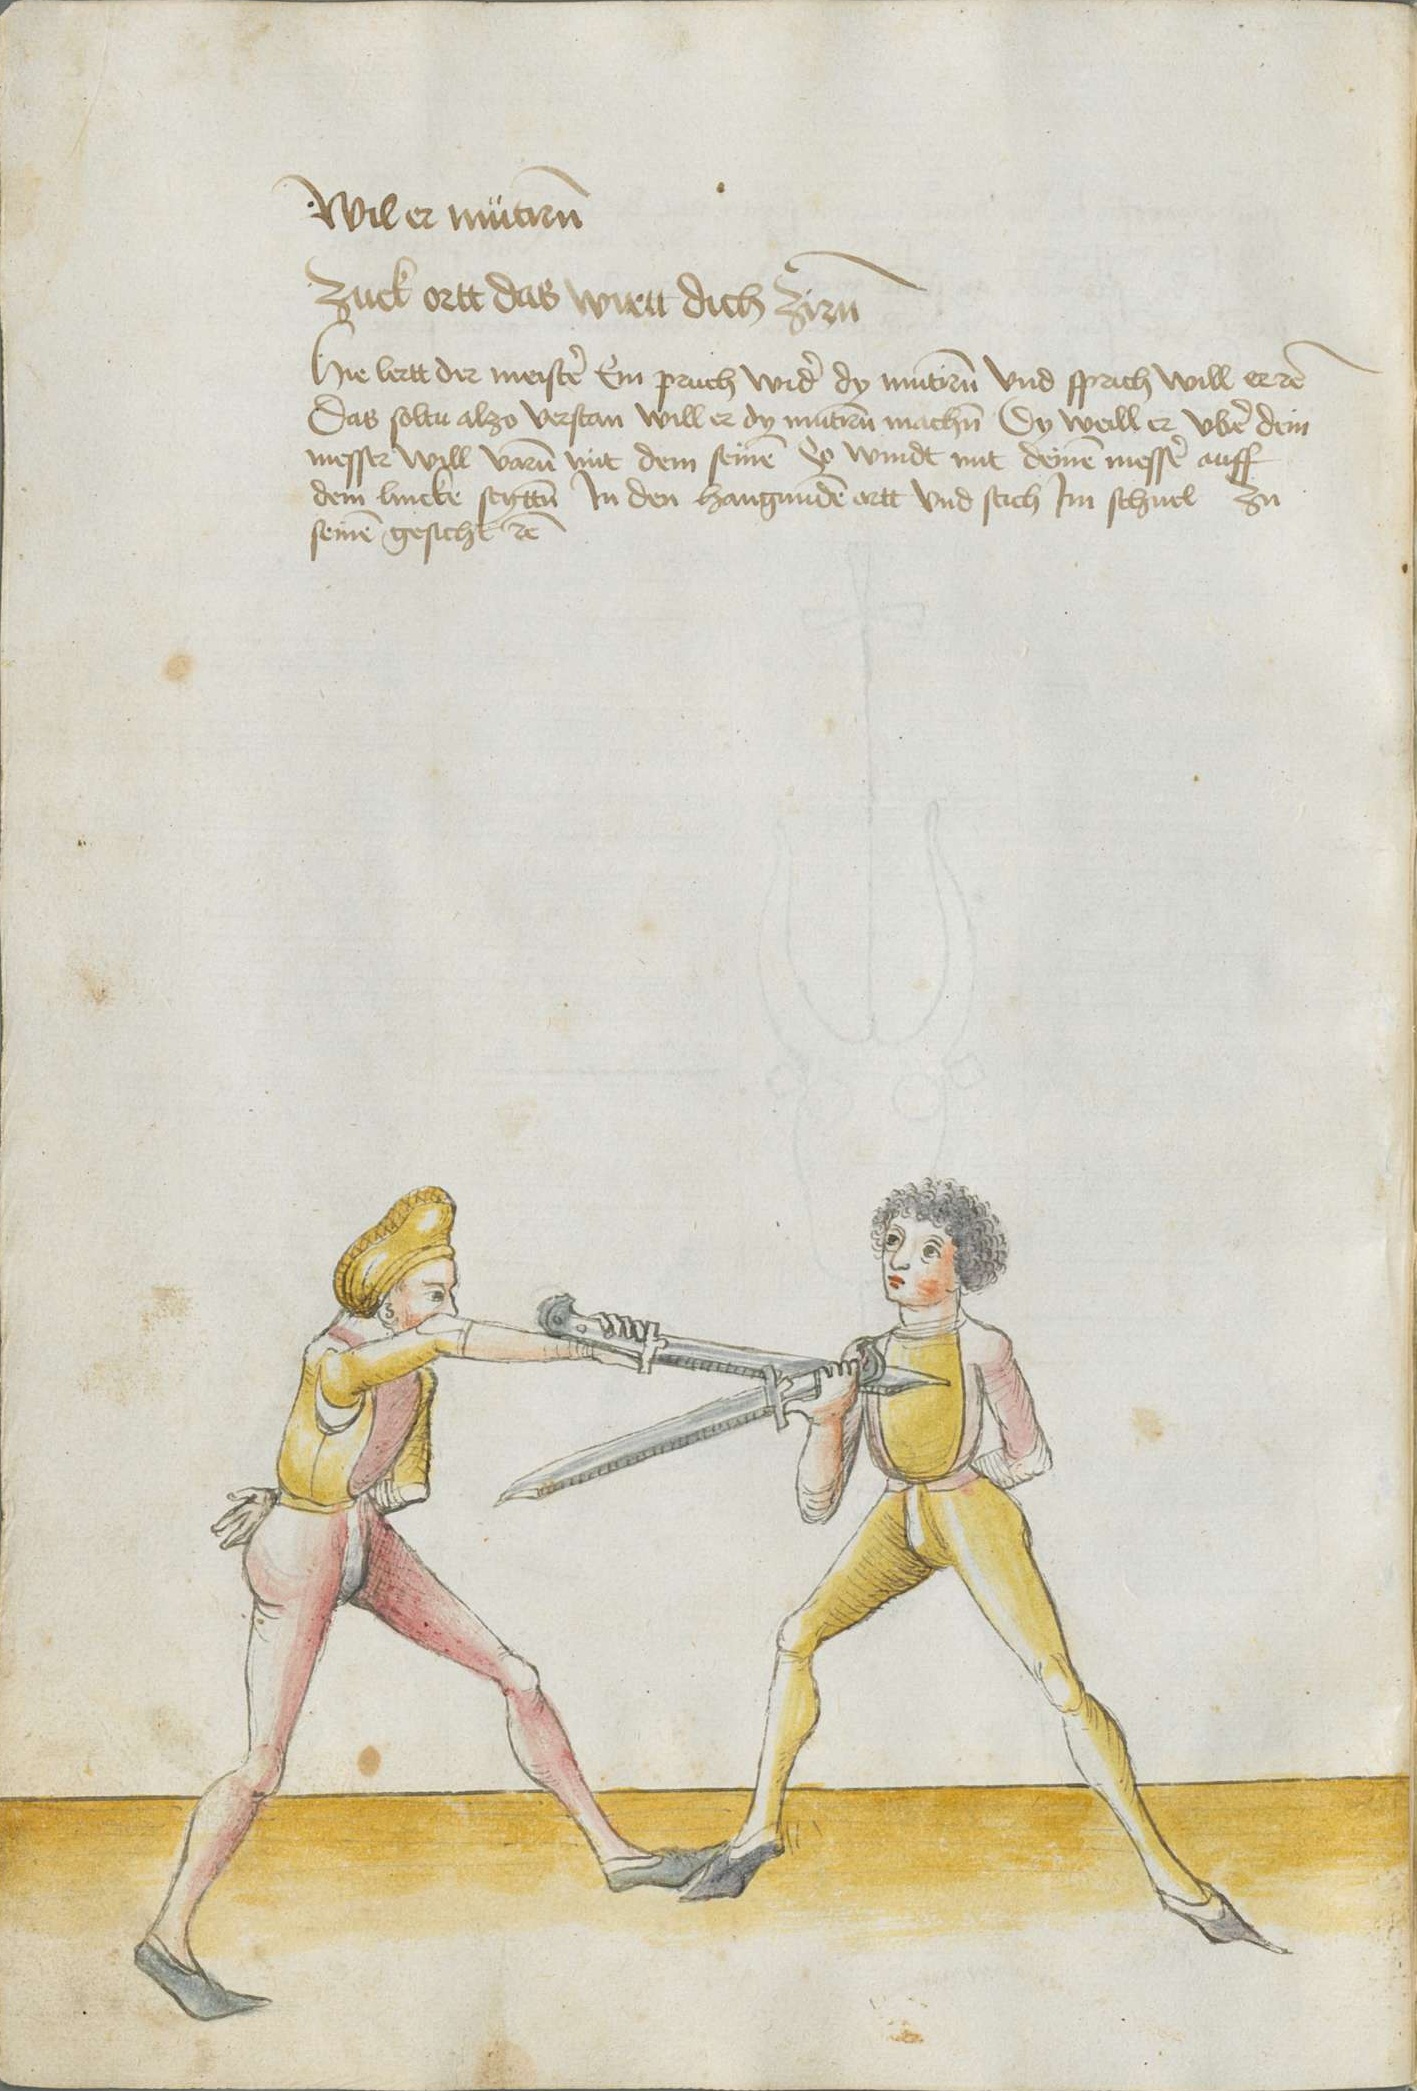 Wil er mütirn̄
Zuck ortt das wirtt dich Zirn
Hie lertt der meister̄ Ein pruch wider̄ dy mutirn̄ Vnd sprich will er rc̄
Das soltu alzo verstan will er dy mutirn̄ machn̄ Dy weill er vber̄ dein
messer will varn̄ mit dem seinē So windt mit deinē messer̄ auff
dein lincke seyttn̄ In den hangundē ortt vnd stich Im schnel zu
seinē gesicht rc̄